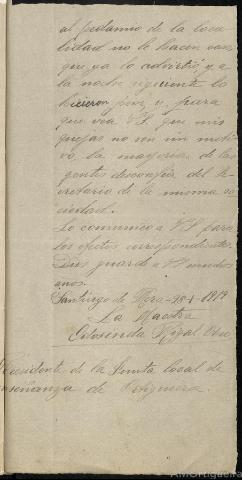 al pedanio de la loca
lidad no le hacen caso,
que ya lo advirtió, y a
la noche siguiente lo
hicieron peor, y, para
que vea VS. que mis
quejas no son sin moti
vo, la mayoria de las
gentes desconfia del Se
cretario de la misma so
ciedad.
Lo comunico a VS para
los efectos correspondientes.
Dios guarde a VS muchos
anos.
Santiago de Mera-28-1-1919
La Maestra
Rigal
Presidente de la Junta local de
enseñanza de Ortigueira.
AMOrtigueira